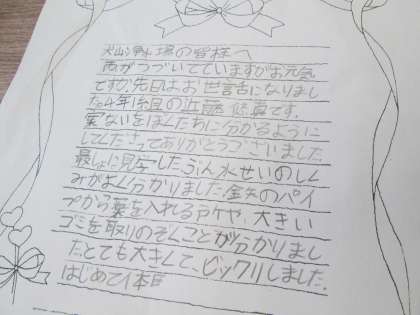 犬山浄水場の皆様へ
雨がつづいていますがお元気
ですか。先日はお世話になりまし
た。4年1組の近藤です。
案ないをぼくたちに分かるように
してくださってありがとうございました。
最しょに見学したぶん水せいのしく
みがよく分かりました。金失のパイ
プから薬を入れる所や、大きい
ゴミを取りのぞくことが分かりまし
たとても大きくて、ビックリしました。
はじめて1本目